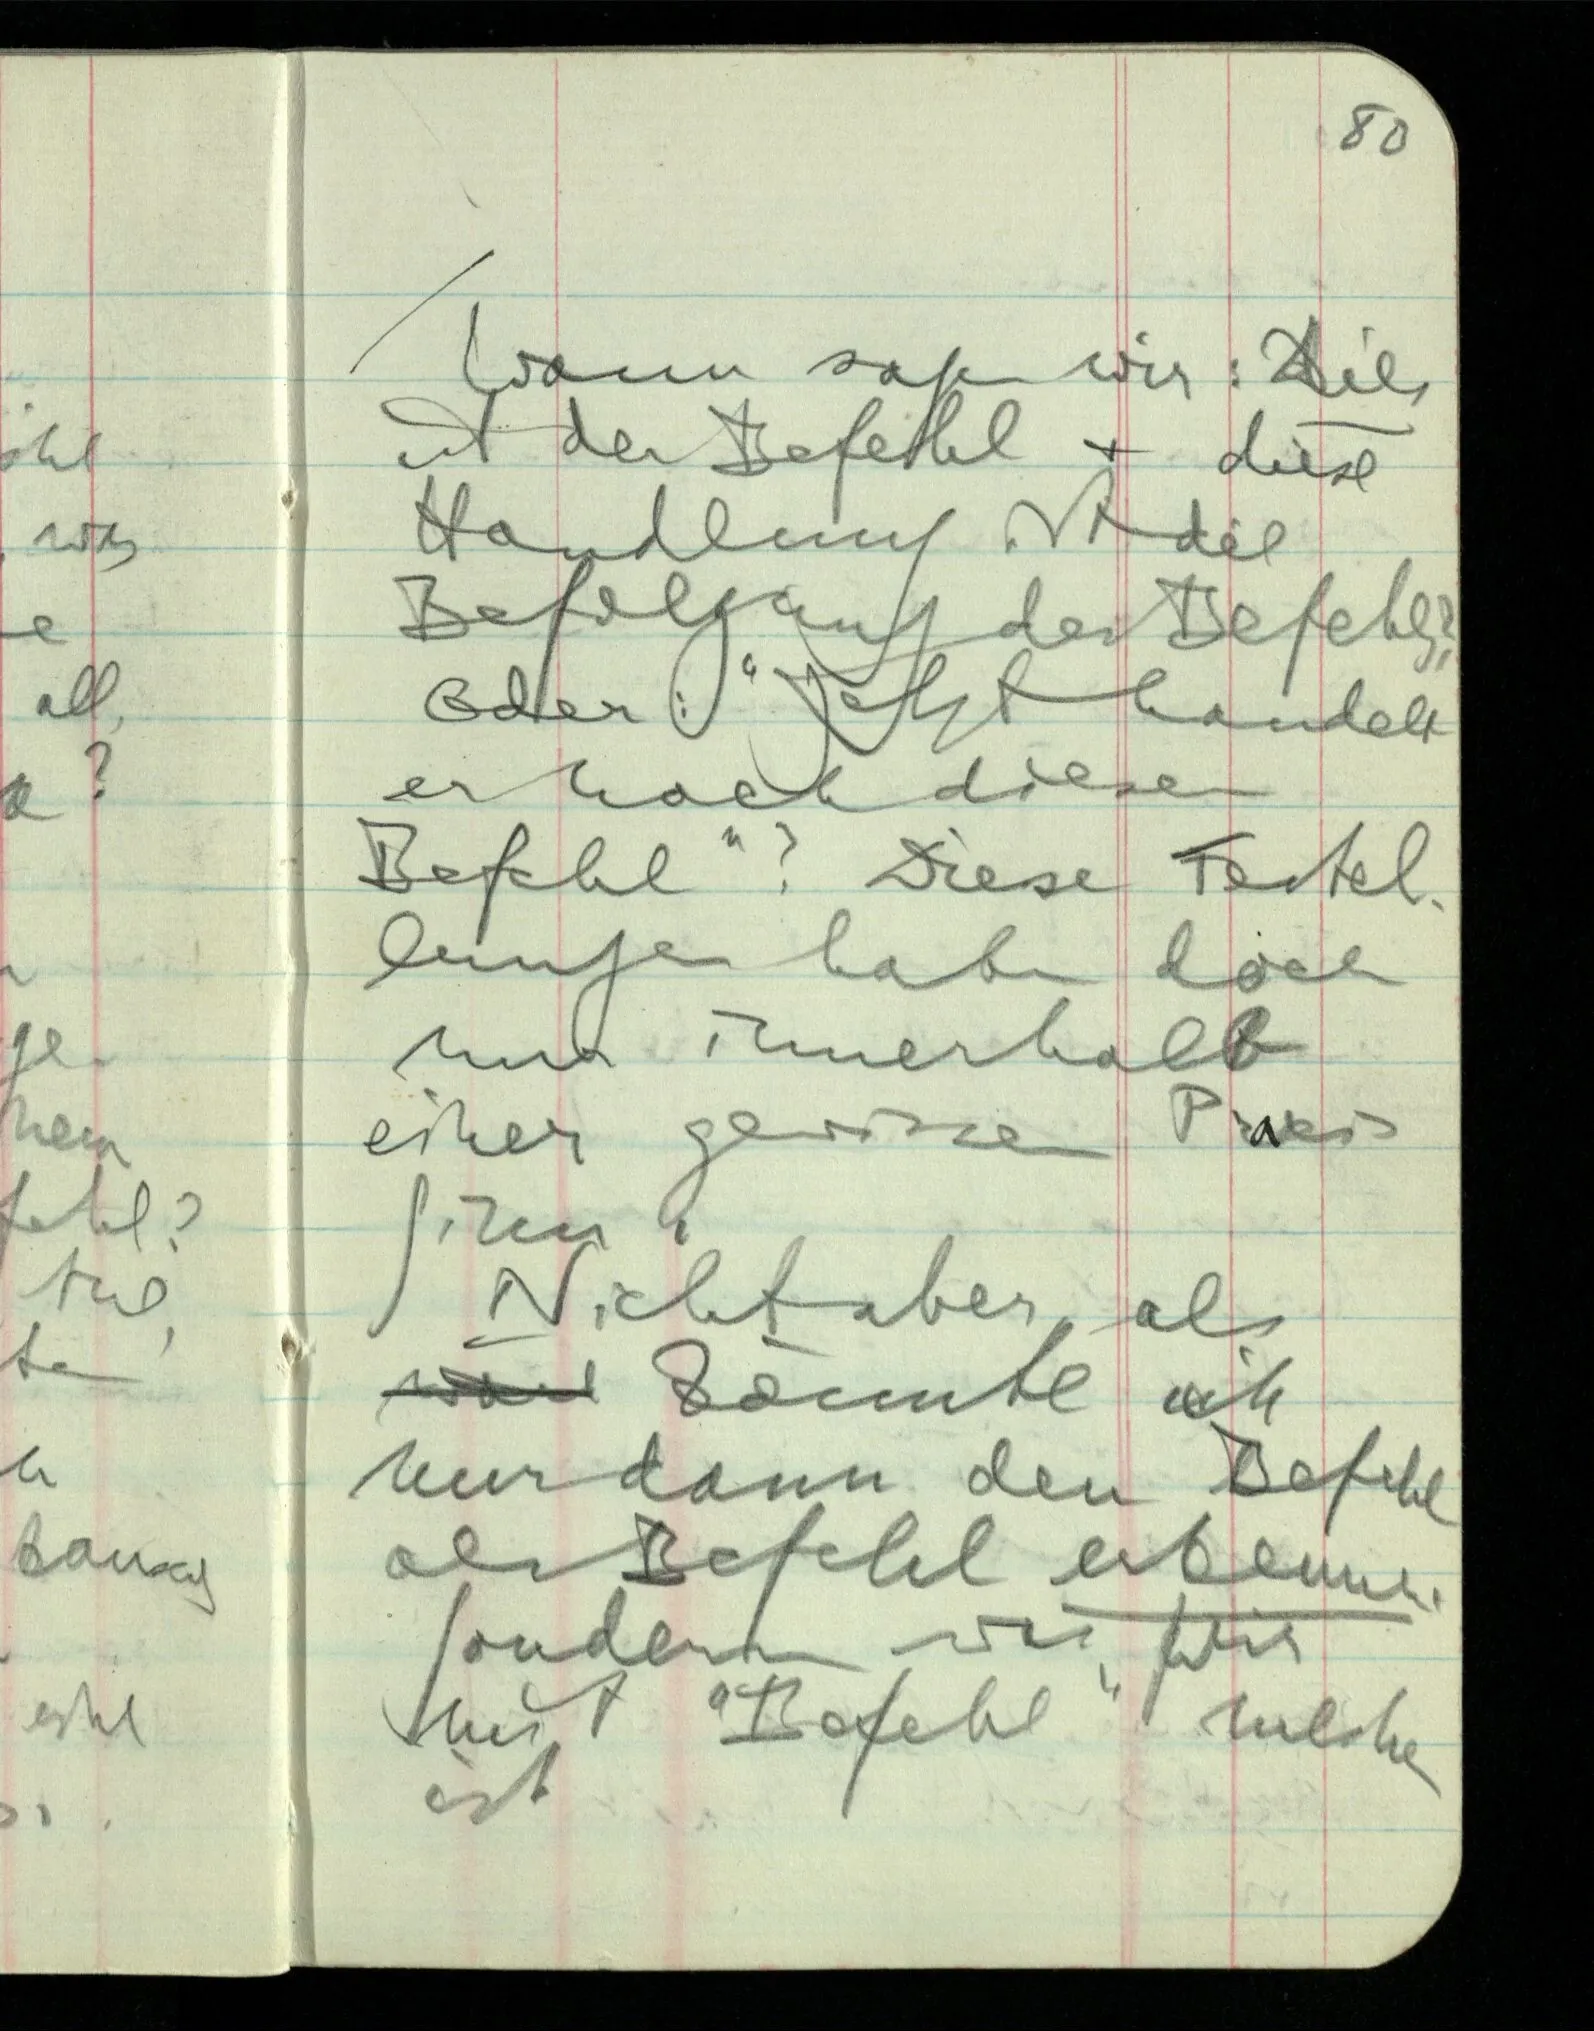 80
/ Wann sagen wir: Dies
ist der Befehl + diese
Handlung ist die
Befolgung des Befehls?
Oder: "Jetzt handelt
er nach diesem
Befehl"? Diese Festel-
lungen haben doch
nur innerhalb
einer gewissen Praxis
Sinn.
Nicht aber, als
könnte ich
nur dann den Befehl
als Befehl erkennen.
Sondern was wir
mit "Befehl" meinen
ist
ehl
was
e
all,
a?
ge
nen
fehl?
ten
h